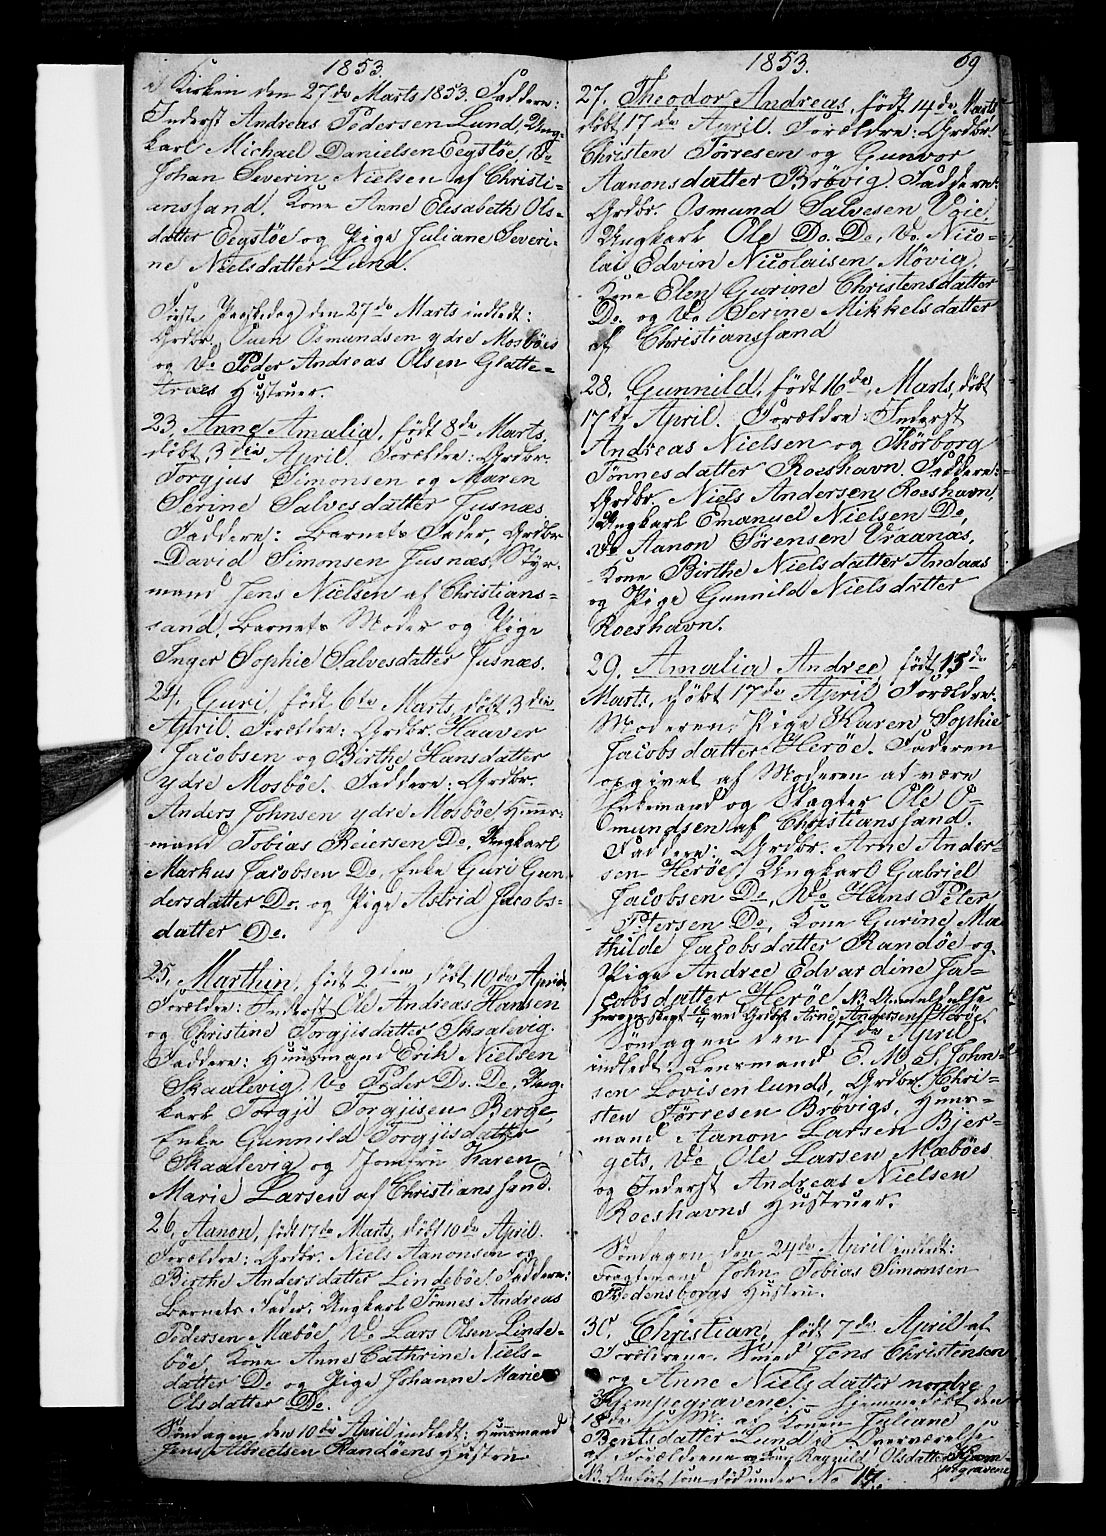 1853.
i Kirken den 27de Marts 1853. Faddere:
Inderst Andreas Pedersen Lund, Ung-
karl Michael Danielsen Eegstøe, Do
Johan Severin Nielsen af Christi-
anssand. Kone Anne Elisabeth Ols-
datter Eegstøe og Pige Juliane Severi-
ne Nielsdatter Lund.
Paaskedag den 27de Marts indledt:
Grdbr. Ouen Osmundsen ydre Mosbøes
og Do Peder Andreas Olsen Glatte-
træes Hustruer.
23, Anne Amalia, født 8de Marts,
døbt 3die April. Forældre: Grdbr.
Torgjus Simonsen og Maren
Serine Salvesdatter Jusnæs.
Faddere: Barnets Fader, Grdbr
David Simonsen Jusnæs, Styr-
mand Jens Nielsen af Christians-
sand, Barnets Moder og Pige
Inger Sophie Salvesdatter Jusnæs.
24. Guri, født 6te Marts, døbt 3die
April. Forældre: Grdbr. Haaver
Jacobsen og Birthe Hansdatter
ydre Mosbøe. Faddere: Grdbr.
Anders Johnsen ydre Mosbøe, Huus-
mand Tobias Reiersen Do, Ungkarl
Markus Jacobsen Do, Enke Guri Gun-
dersdatter Do. og Pige Astrid Jacobs-
datter Do.
25, Marthin, født 2den, døbt 10de April,
Forældre: Inderst Ole Andreas Hansen
og Christine Torgjisdatter Skaalevig.
Faddere: Huusmand Erik Nielsen
Skaalevig, Do Peder Do. Do, Ung-
karl Torgji Torgjisen Berge,
Enke Gunnild Torgjisdatter
Skaalevig og Jomfru Karen
Marie Larsen af Christianssand.
26, Aanon, født 17de Marts, døbt 10de April.
Forældre: Grdbr. Niels Aanonsen og
Birthe Andersdatter Lindebøe. Faddere:
Barnets Fader, Ungkarl Tønnes Andreas
Pedersen Mæbøe, Do Lars Olsen Linde-
bøe, Kone Anne Cathrine Niels-
datter Do og Pige Johanne Marie
Olsdatter Do.
Søndagen den 10de April indledt: Huusmand
Jens Randøens Hustru
1853. 69
27. Theodor Andreas, født 14de Marts,
døbt 17de April. Forældre: Grdbr.
Christen Tørresen og Gunvor
Aanonsdatter Brøvig. Faddere:
Grdbr. Osmund Salvesen Ugie,
Ungkarl Ole Do. Do, Do. Nico-
lai Edvin Nicolaisen Møvig,
Kone Elen Gurine Christensdatter
Do. og Do Serine Mikkelsdatter
af Christianssand
28, Gunnild, født 16de Marts, døbt
17de April. Forældre: Inderst
Andreas Nielsen og Thorborg
Tønnesdatter Roeshavn. Faddere:
Grdbr. Niels Andersen Roeshavn,
Ungkarl Emanuel Nielsen Do,
Do Aanon Sørensen Vraanæs,
Kone Birthe Nielsdatter Andaas
og Pige Gunnild Nielsdatter
Roeshavn.
29, Amalia Andree, født 15de
Marts, døbt 17de April. Forældre:
Moderen, Pige Karen Sophie
Jacobsdatter Herøe. Faderen
opgivet af Moderen at være
Enkemand og Slagter Ole O-
smundsen af Christianssand.
Faddere: Grdbr. Arne Ander-
sen Herøe, Ungkarl Gabriel
Jacobsen Do, Do Hans Peter
Petersen Do, Kone Gurine Ma-
thilde Jacobsdatter Randøe og
Pige Andree Edvardine Ja-
cobsdatter Herøe. NB Anmeldelse
ved Grdbr Arne Andersen Herøe.
Søndagen den 17de April
indledt: Lensmand E. M. S. John-
sen Lovisenlunds, Grdbr. Chri-
sten Tørresen Brøvigs, Huus-
mand Aanon Larsen Bjer-
gets, Do Ole Larsen Mæbøes
og Inderst Andreas Nielsen
Roeshavns Hustruer.
Søndagen den 24de April indledt:
Fragtemand John Tobias Simonsen
Fredensborgs Hustru.
30, Christian, født 7de April af
Forældrene, Smed Jens Christensen
og Anne Nielsdatter nordre
Kjempegravene. Hjemmedøbt den
18de af Konen Juliane
Bentsdatter Lund i Overværelse
af Forældrene og Ragnild Olsdatter Kjem-
pegravene
NB Anført som død under No 17.